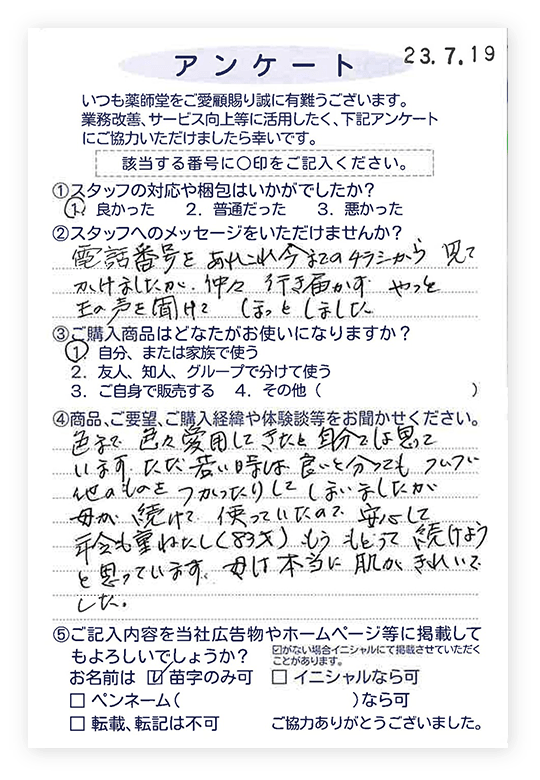 23.7.19
アンケート
いつも薬師堂をご愛顧賜り誠に有難うございます。
業務改善、サービス向上等に活用したく、下記アンケート
にご協力いただけましたら幸いです。
該当する番号に○印をご記入ください。
①スタッフの対応や梱包はいかがでしたか？
1. 良かった 2. 普通だった 3. 悪かった
②スタッフへのメッセージをいただけませんか？
電話番号をあれこれ今までのチラシから見て
かけましたが、仲々行き届かず やっと
生の声を聞けて ほっとしました
③ご購入商品はどなたがお使いになりますか？
1 自分、または家族で使う
2. 友人、知人、グループで分けて使う
3. ご自身で販売する 4. その他（ ）
④商品、ご要望、ご購入経緯や体験談等をお聞かせください。
色まで 色々愛用してきたと自分では思って
います。ただ若い時は良いと分っても ついつい
他のものを つかったりして しまいましたが
母が続けて使っていたので安心して
年令も重ねたし（83才）もう もどって続けよう
と思っています。母は本当に肌がきれいで
した。
⑤ご記入内容を当社広告物やホームページ等に掲載して
もよろしいでしょうか？
☑がない場合イニシャルにて掲載させていただく
ことがあります。
お名前は ☑ 苗字のみ可 □ イニシャルなら可
□ ペンネーム（ ）なら可
□ 転載、転記は不可 ご協力ありがとうございました。